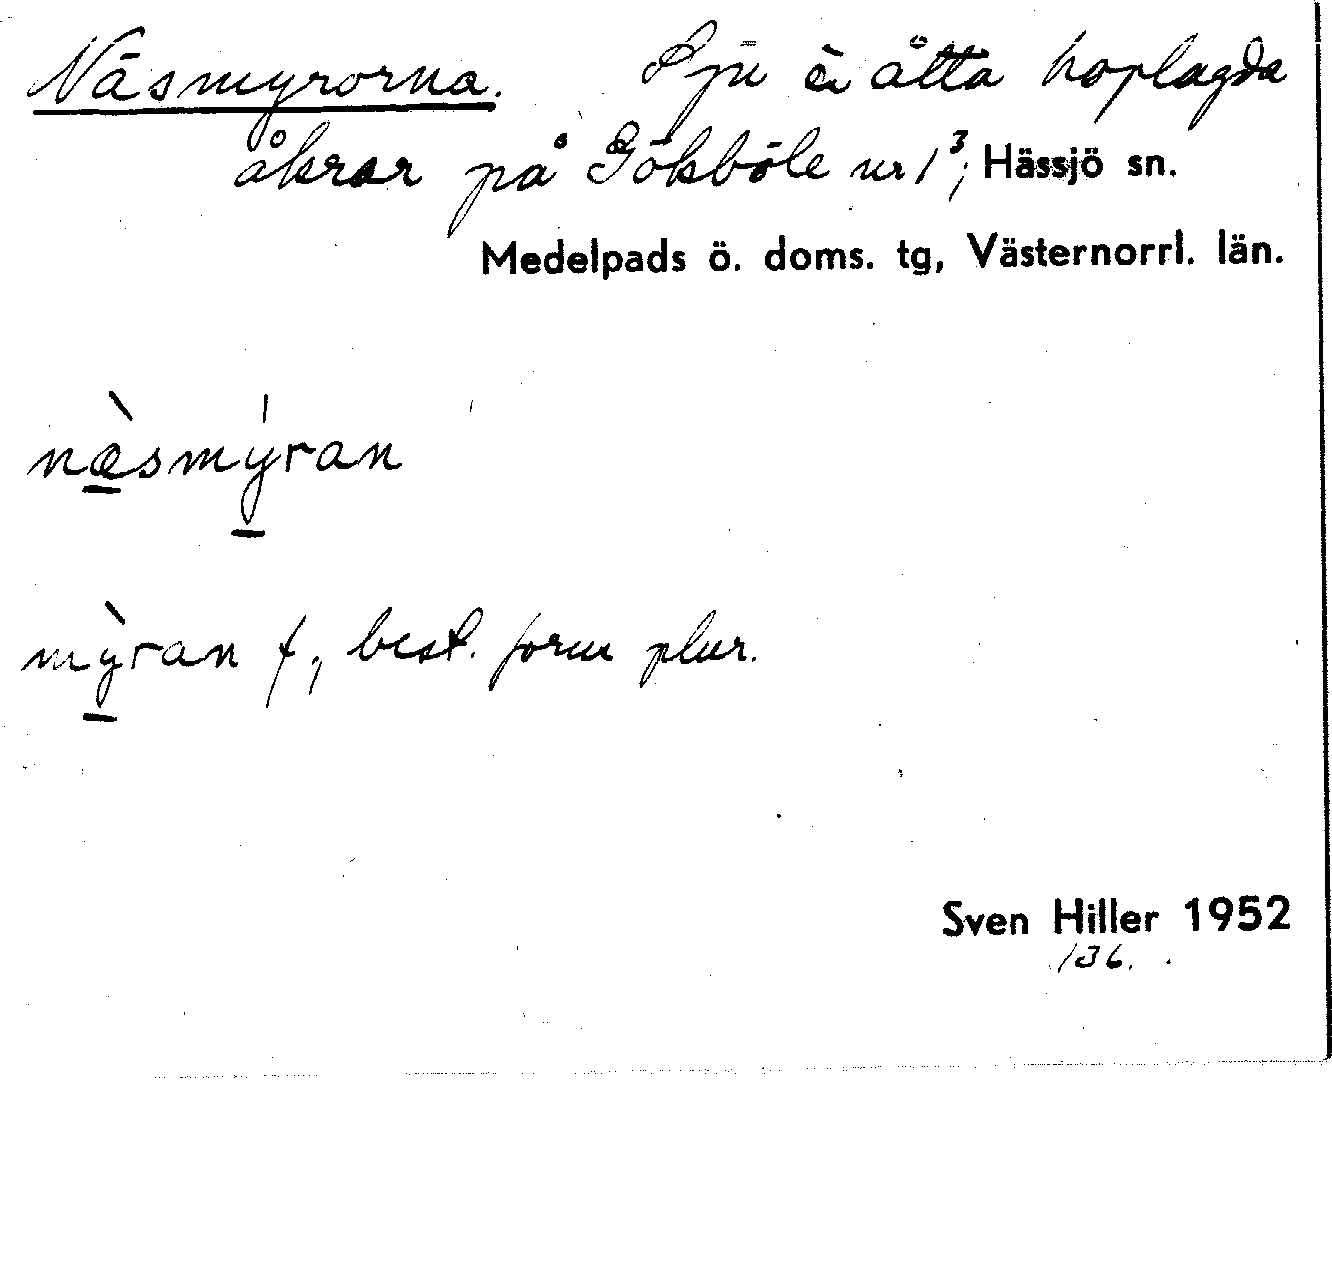 Näsmyrorna. Sju à åtta hoplagda
åkrar på Gökböle nr 1³, Hässjö sn.
Medelpads ö. doms. tg, Västernorrl. län.
næ̀smýran
mỳran f., best. form plur.
Sven Hiller 1952
136.